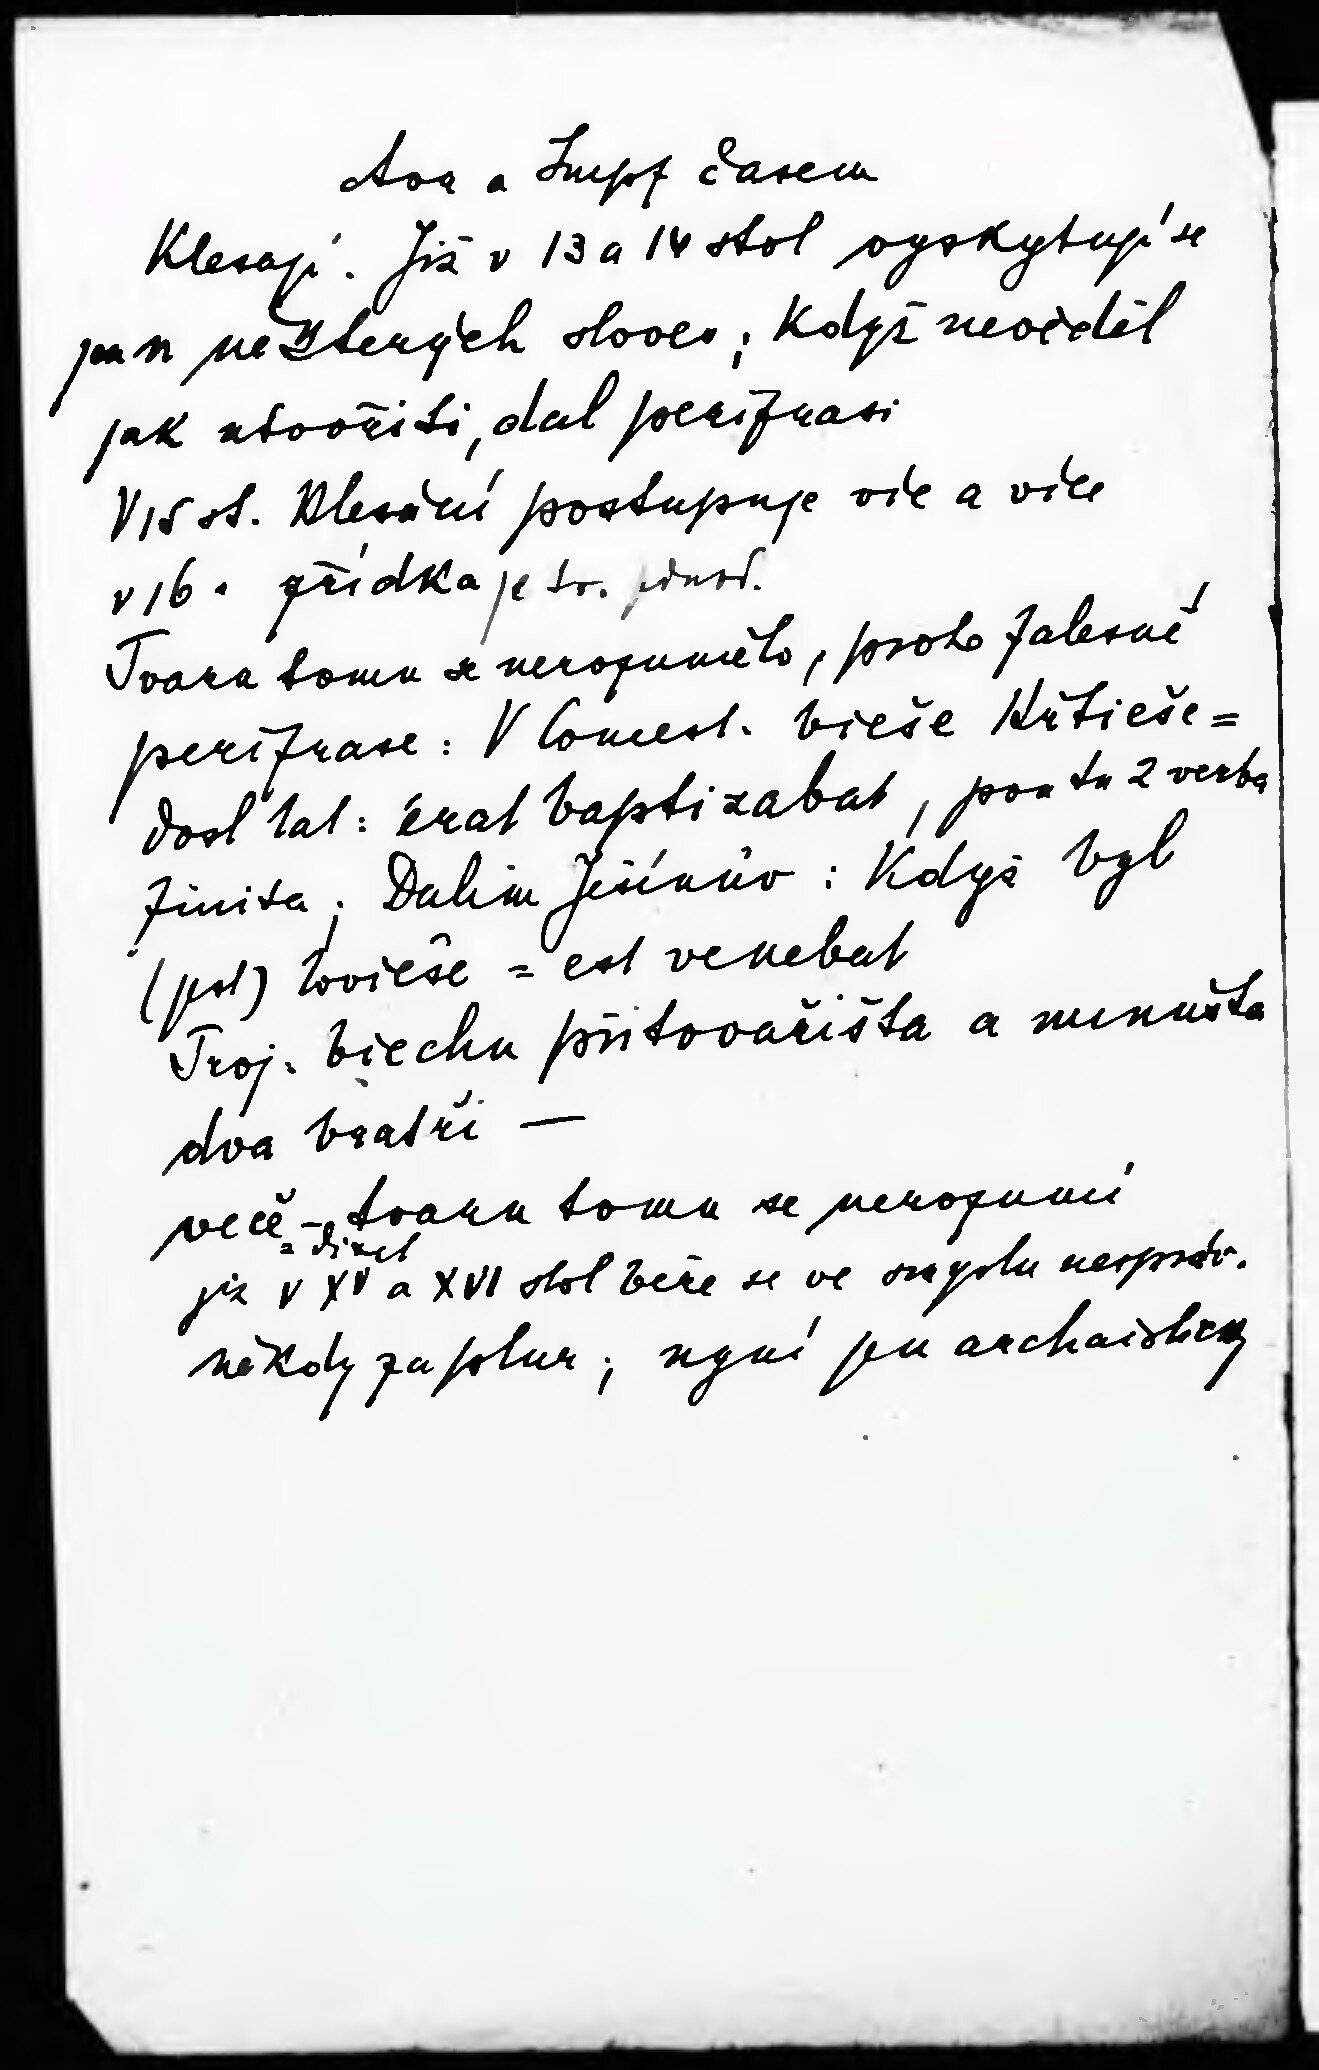 Aor a Impf časem
Klesají. Již v 13 a 14 stol vyskytují se
jen u některých sloves; Když nevěděl
jak utvořiti, dal perifrasi
V 15 st. Klesání postupuje víc a více
v 16. zřídka je tv. jednod.
Tvaru tomu se nerozumělo, proto falešné
perifrase: V Comest. bieše Křtieše =
dosl lat: erat baptizabat, jsou tu 2 verba
finita; Dalim Ješínův: Když byl
(jest) lovieše = est venebat
Troj. biechu přitovařišta a minušta
dva bratři —
vecě – tvaru tomu se nerozumí
= dixit
již v XV a XVI stol béře se ve smyslu nespráv.
někdy za plur; nyní jen archaisticky